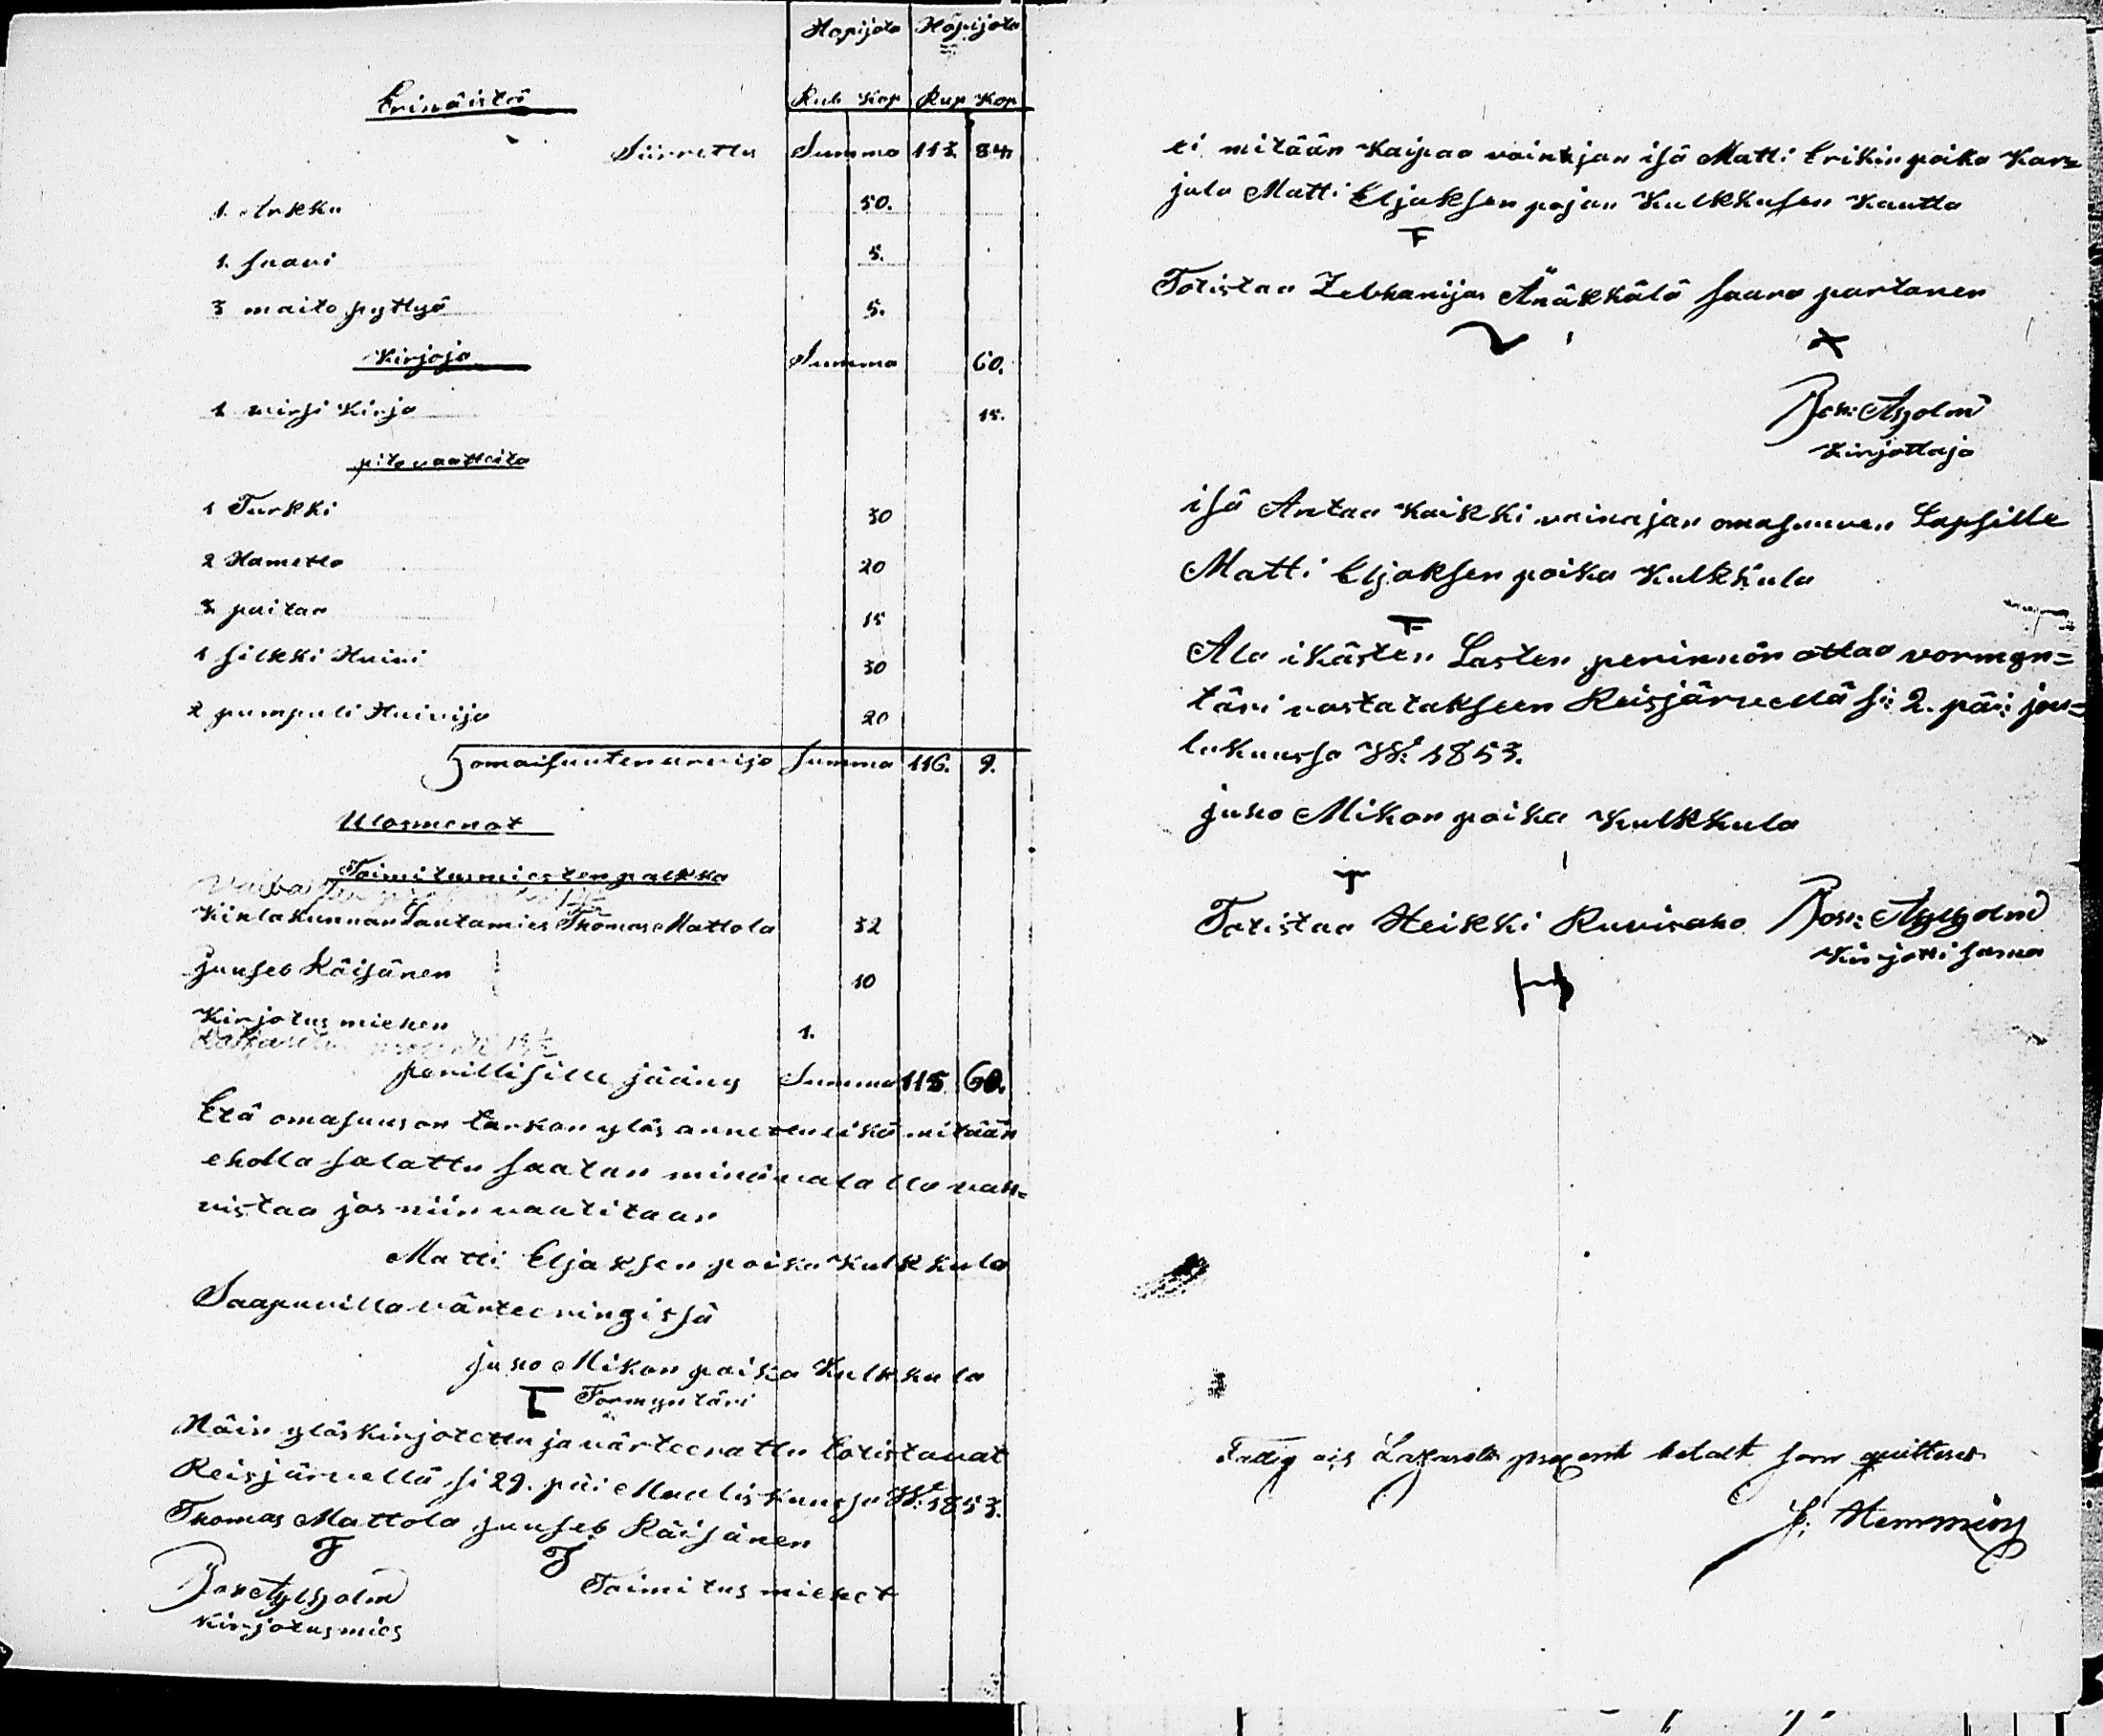 Hopijata Hopijata
Erinäistä Rub Kop Rup Kop
Siirrettu Summa 113. 84
1. Arkku 50.
1. saavi 5.
3 maito pyttyä 5.
Kirjoja Summa 60.
1 wirsi Kirja 15.
pitovaatteita
1 Turkki 30
2 Hametta 20
3 paitaa 15
1 silkki Huivi 30
2 pumpuli Huivija 20
omaisuuten arvija summa 116. 9.
Ulosmenot
Toimitusmiesten palkka
Kihlakunnan Lautamies Thomas Mattola 32
juuseb Räisänen 10
Kirjotus miehen 1.
perillisille jääny Summa 115 60.
Etä omasuus on tarkan yläs annettu eikä mitään
eholla salattu saatan minä valalla vah=
vistaa jos niin vaatitaan
Matti Eljaksen poika Kulkkula
Saapuvilla värteeringissä
juho Mikon poika Kulkkula
Formyntäri
Näin yläskirjotettu ja värteerattu totistavat
Reisjärvellä si 29. päi Maaliskuussa W: 1853.
Thomas Mattola juuseb Räisänen
Toimitus miehet
Kirjotusmies
ei mitään Kaipaa vainajan isä Matti Erikin poika Kar=
jula Matti Eljaksen pojan Kulkkusen Kautta
Totistaa Zebhanijas Änäkkälä saara partanen
Kirjottaja
isä Antaa Kaikki vainajan omasuuven Lapsille
Matti Eljaksen poika Kulkkula
Ala ikästen Lasten perinnön ottaa vormyn=
täri vastataksen Reisjärvellä si: 2. päi: jou=
lukuussa W: 1853.
juho Mikon poika Kulkkula
Totistaa Heikki Ruuvisaho
Kirjotti saman
Fattig och Lazaretts procent betalt som quitteras
Hemming